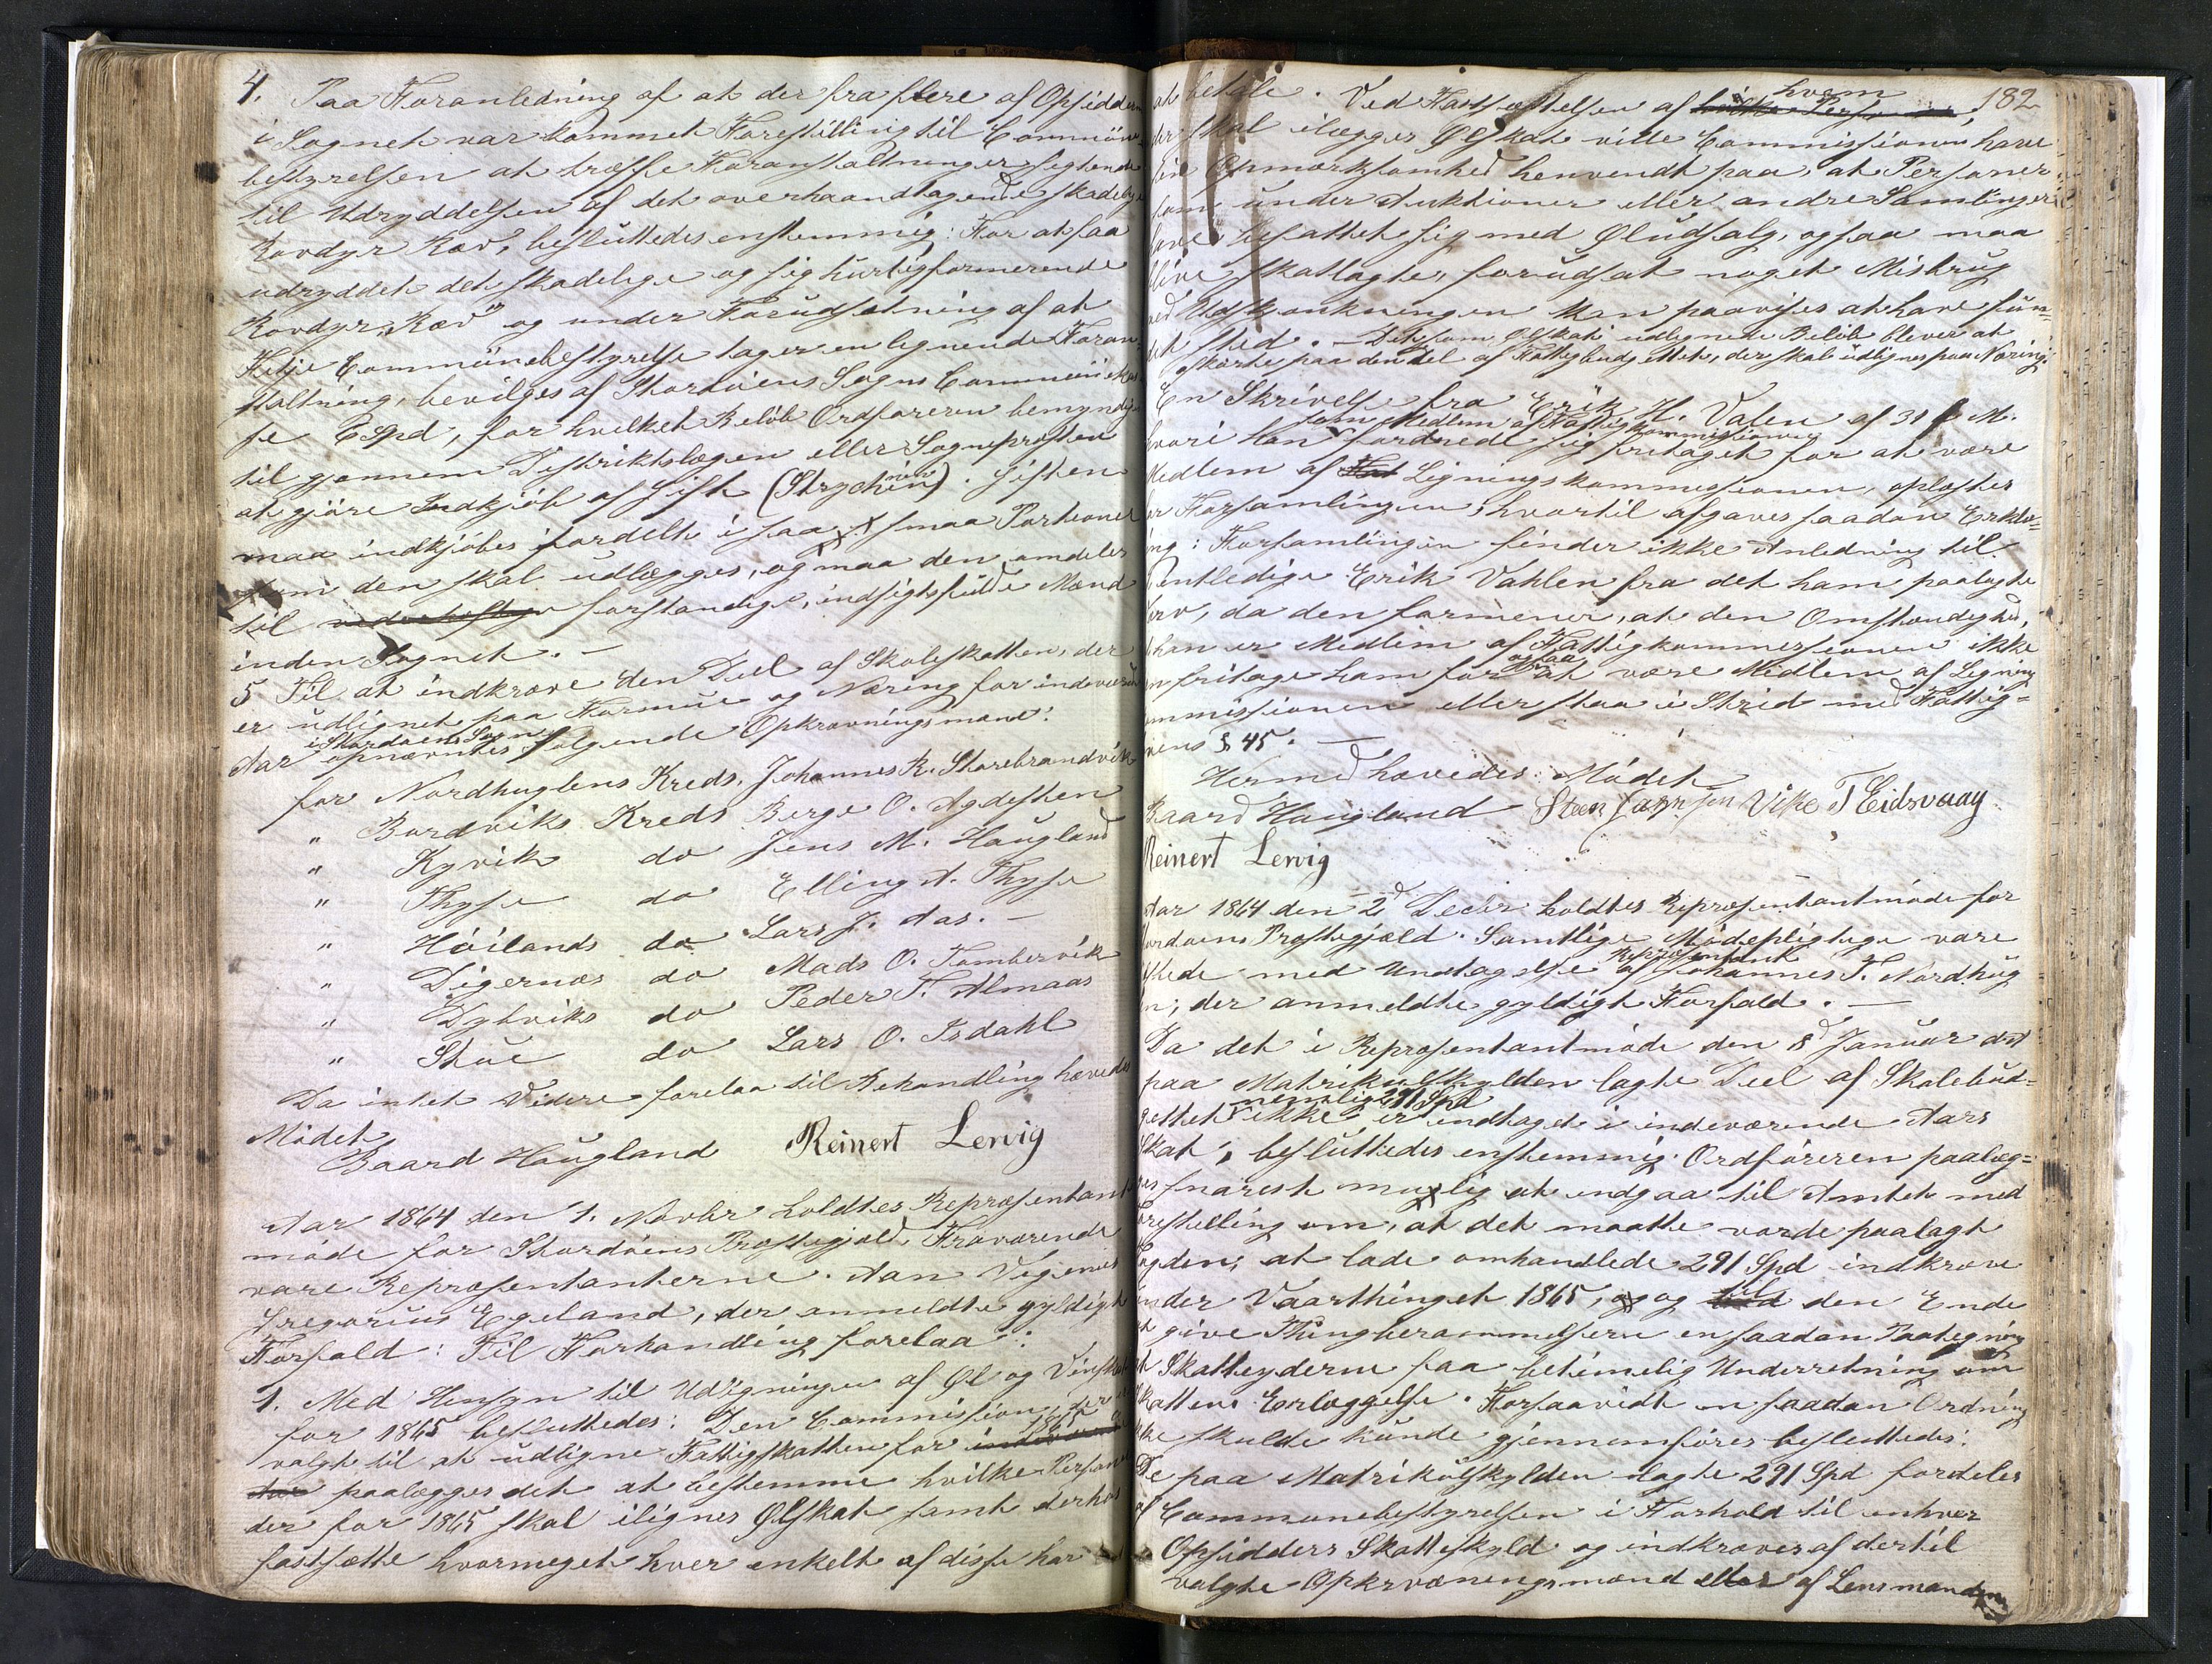 4. Paa Foranledning af at der fra flere af Opsiddern
i Sognet var kommet Forestilling til Commüne-
bestyrelsen at træffe Foranstaltninger sigtende
til Udryddelsen af det overhaandtagende skadelige
Rovdyr Ræv, besluttedes enstemmig: For at faa
udryddet det skadelige og sig hurtigformerende
Rovdyr „Ræv" og under Forudsætning af at
Commünebestyrelse tager en lignende Foran-
staltning, bevilges af Stordöens Sogns Commune
6 Spd, for hvilket Belöb Ordföreren bemyndig
til gjennem Distriktslægen eller Sogneprosten
at gjöre Indkjöb af Gift (Strychnin). Giften
maa indkjöbes fordelt i saa smaa Portioner
som den skal udlægges, og maa den omdeles
til forstandige, indsigtsfulde Mænd
inden Sognet. —
5 Til at indkræve den Deel af Skoleskatten, der
er udlignet paa Formue og Næring for indevær
i Stordöens Sogn
Aar opnævntes fölgende Opkrævningsmænd:
for Nordhuglens Kreds, Johannes R. Storebrandvik
" Bardviks Kreds Berge O. Agdesten
" Kyvik do Jens M. Haugland
" Thyse do Elling A. Thyse
" Höilands do Lars J. Aas. —
" Digernæs do Mads O. Tombervik
" Dybviks do Peder T. Almaas
" Stue do Lars O. Isdahl
Da intet Videre forelaa til Behandling hævedes
Mödet
Baard Haugland Reinert Lervig
Aar 1864 den 1. Novbr holdtes Repræsentant
möde for Stordöens Præstegjeld. Fraværende
vare Repræsentanterne Aan Vegenes
Gregorius Egeland, der anmeldte gyldigt
Forfald: Til Forhandling forelaa:
1. Med Hensyn til Udligningen af Øl og Vinskat
for 1865 besluttedes: Den Commission, der er
1865
valgt til at udligne Fattigskatten for
Aar paalægges det at bestemme hvilke Personer
der for 1865 skal ilignes Ølskat samt derhos
fastsætte hvormeget hver enkelt af disse har
182
hvem
at betale. Ved Fastsættelsen af
der skal ilægges Ølskat ville Commissionen have
sin Opmærksomhed henvendt paa, at Personer
som under Auktioner eller andre Samlinger
have befattet sig med Øludsalg, ogsaa maa
blive skatlagte, forudsat noget Misbrug
ved Udskjenkningen kan paavises at have fun-
det sted. — Det som Ølskat udlignede Belöb bliver at
afkorte paa den del af Fattigbudgettet, der skal udlignes paa Næring.
En Skrivelse fra Erik H. Valen af 31 f. M.
som Medlem af Fattigkommissionen
hvori han fordrede sig fritaget for at være
Medlem af Ligningskommissionen, oplæstes
for Forsamlingen, hvortil afgaves saadan Erklæ-
ing: Forsamlingen finder ikke Anledning til
entledige Erik Vahlen fra det ham paalagte
erv, da den formener, at den Omstændighed,
han er Medlem af Fattigkommissionen ikke
ogsaa
n fritage ham for at være Medlem af Ligning
ommissionen eller staa i Strid med Fattig-
vens § 45. —
Hermed hævedes Mödet
Baard Haugland Steen Larssen Vike T Eidsvaag
Reinert Lervig
Aar 1864 den 2d Decbr holdtes Repræsentantmöde for
tordöens Præstegjeld. Samtlige Mödepligtige vare
Repræsentant
östede med Undtagelse af Johannes T. Nordhug
n, der anmeldte gyldigt Forfald. —
Da det i Repræsentantmöde den 8d Januar
paa Matrikulskylden lagte Deel af Skolebud-
nemlig 291 Spd
gettet ikke er indtaget i indeværende Aars
Skat, besluttedes enstemmig: Ordföreren paalæg-
ges snarest mulig at indgaa til Amtet med
orestilling om, at det maatte vorde paalagt
ogden, at lade omhandlede 291 Spd indkræve
til
under Vaarthinget 1865, og den Ende
at give Thingberammelsen en saadan Paategning
at Skatteyderne faa betimelig Underretning om
Skattens Erlæggelse. Forsaavidt en saadan Ordning
ikke skulde kunde gjennemföres besluttedes:
De paa Matrikulskylden lagte 291 Spd fordeles
af Communebestyrelsen i Forhold til enhver
Opsidders Skatteskyld og indkræves af dertil
valgte Opkrævningsmænd eller af Lensmanden